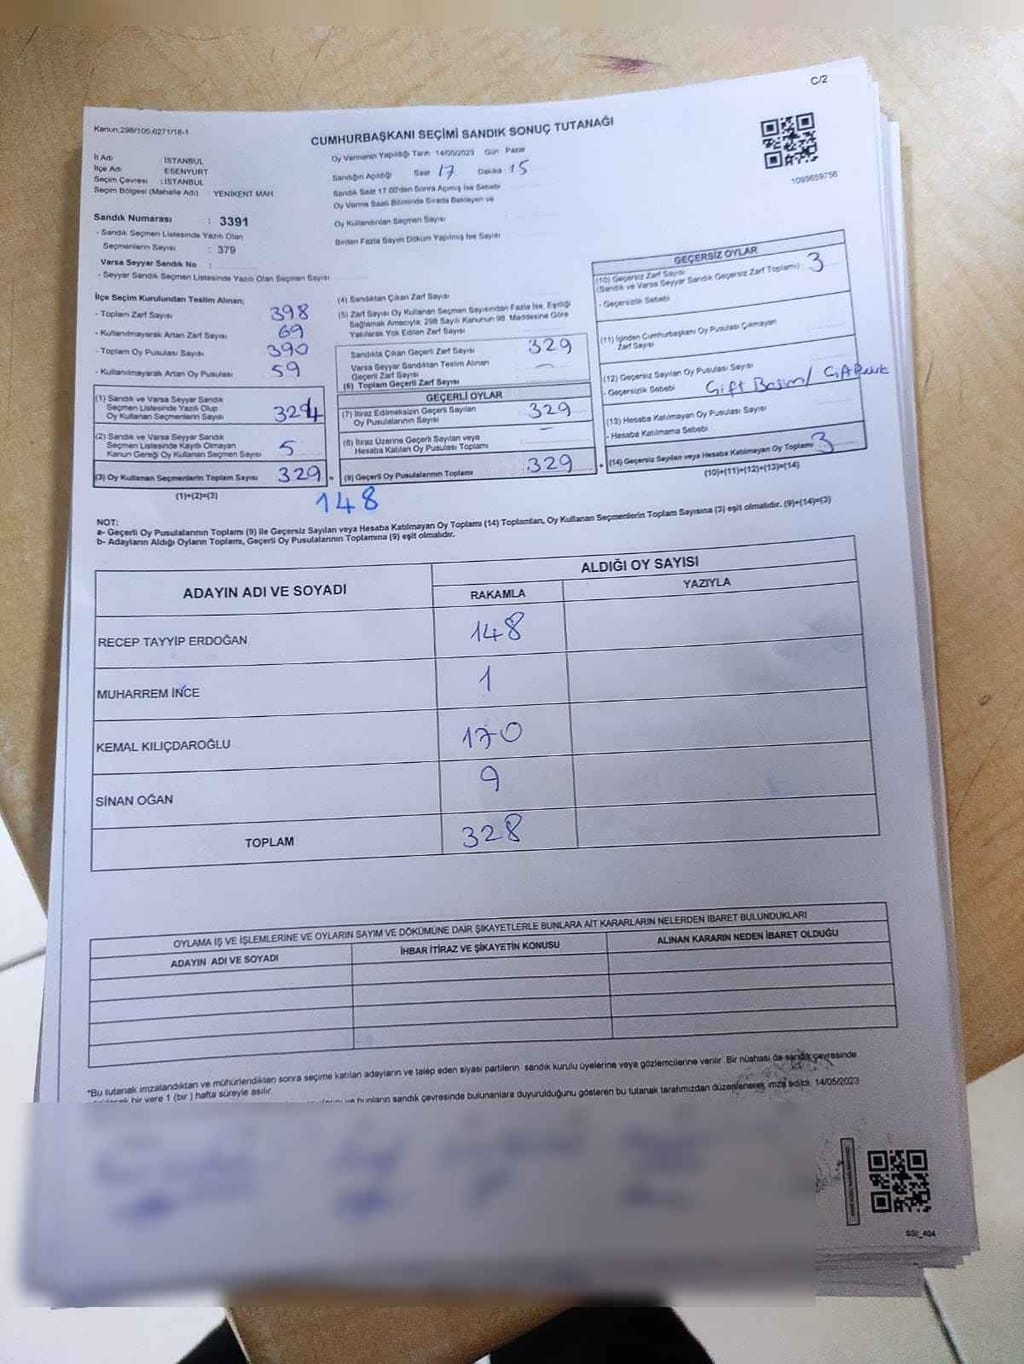 C/2
Kanun:298/105.6271/16-1
CUMHURBAŞKANI SEÇİMİ SANDIK SONUÇ TUTANAĞI
1093659756
İl Adı : İSTANBUL
İlçe Adı : ESENYURT
Seçim Çevresi : İSTANBUL
Seçim Bölgesi (Mahalle Adı) YENİKENT MAH
Sandık Numarası : 3391
- Sandık Seçmen Listesinde Yazılı Olan
Seçmenlerin Sayısı : 379
Varsa Seyyar Sandık No :
- Seyyar Sandık Seçmen Listesinde Yazılı Olan Seçmen Sayısı
Oy Vermenin Yapıldığı Tarih 14/05/2023 Gün Pazar
Sandığın Açıldığı Saat 17 Dakika 15
Sandık Saat 17.00'den Sonra Açılmış İse Sebebi
Oy Verme Saati Bitiminde Sırada Bekleyen ve
Oy Kullandırılan Seçmen Sayısı
Birden Fazla Sayım Döküm Yapılmış İse Sayısı
İlçe Seçim Kurulundan Teslim Alınan;
- Toplam Zarf Sayısı 398
- Kullanılmayarak Artan Zarf Sayısı 69
- Toplam Oy Pusulası Sayısı 390
- Kullanılmayarak Artan Oy Pusulası 59
(1) Sandık ve Varsa Seyyar Sandık
Seçmen Listesinde Yazılı Olup
Oy Kullanan Seçmenlerin Sayısı 324
(2) Sandık ve Varsa Seyyar Sandık
Seçmen Listesinde Kayıtlı Olmayan
Kanun Gereği Oy Kullanan Seçmen Sayısı 5
(3) Oy Kullanan Seçmenlerin Toplam Sayısı 329 =
(1)+(2)=(3)
148
(4) Sandıktan Çıkan Zarf Sayısı
(5) Zarf Sayısı Oy Kullanan Seçmen Sayısından Fazla İse, Eşitliği
Sağlamak Amacıyla, 298 Sayılı Kanunun 98. Maddesine Göre
Yakılarak Yok Edilen Zarf Sayısı
Sandıkta Çıkan Geçerli Zarf Sayısı 329
Varsa Seyyar Sandıktan Teslim Alınan
Geçerli Zarf Sayısı –
(6) Toplam Geçerli Zarf Sayısı
GEÇERLİ OYLAR
(7) İtiraz Edilmeksizin Geçerli Sayılan
Oy Pusulalarının Sayısı 329
(8) İtiraz Üzerine Geçerli Sayılan veya
Hesaba Katılan Oy Pusulası Toplamı –
(9) Geçerli Oy Pusulalarının Toplamı 329 +
GEÇERSİZ OYLAR
(10) Geçersiz Zarf Sayısı
(Sandık ve Varsa Seyyar Sandık Geçersiz Zarf Toplamı) 3
- Geçersizlik Sebebi
(11) İçinden Cumhurbaşkanı Oy Pusulası Çıkmayan
Zarf Sayısı
(12) Geçersiz Sayılan Oy Pusulası Sayısı
- Geçersizlik Sebebi Çift Basım/
(13) Hesaba Katılmayan Oy Pusulası Sayısı
- Hesaba Katılmama Sebebi
(14) Geçersiz Sayılan veya Hesaba Katılmayan Oy Toplamı 3
(10)+(11)+(12)+(13)=(14)
NOT:
a- Geçerli Oy Pusulalarının Toplamı (9) ile Geçersiz Sayılan veya Hesaba Katılmayan Oy Toplamı (14) Toplamları, Oy Kullanan Seçmenlerin Toplam Sayısına (3) eşit olmalıdır. (9)+(14)=(3)
b- Adayların Aldığı Oyların Toplamı, Geçerli Oy Pusulalarının Toplamına (9) eşit olmalıdır.
ADAYIN ADI VE SOYADI
ALDIĞI OY SAYISI
RAKAMLA YAZIYLA
RECEP TAYYİP ERDOĞAN 148
MUHARREM İNCE 1
KEMAL KILIÇDAROĞLU 170
SİNAN OĞAN 9
TOPLAM 328
OYLAMA İŞ VE İŞLEMLERİNE VE OYLARIN SAYIM VE DÖKÜMÜNE DAİR ŞİKAYETLERLE BUNLARA AİT KARARLARIN NELERDEN İBARET BULUNDUKLARI
ADAYIN ADI VE SOYADI İHBAR İTİRAZ VE ŞİKAYETİN KONUSU ALINAN KARARIN NEDEN İBARET OLDUĞU
*Bu tutanak imzalandıktan ve mühürlendikten sonra seçime katılan adayların ve talep eden siyasi partilerin sandık kurulu üyelerine veya gözlemcilerine verilir. Bir nüshası da sandık çevresinde
bir yere 1 (bir ) hafta süreyle asılır.
ve bunların sandık çevresinde bulunanlara duyurulduğunu gösteren bu tutanak tarafımızdan düzenlenerek imza edildi. 14/05/2023
SSI_404